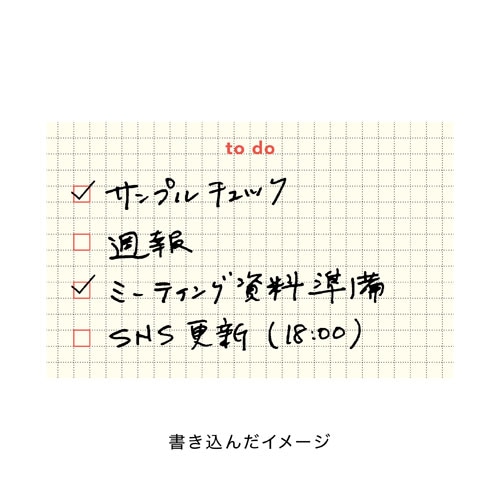 to do
サンプルチェック
週報
ミーティング資料準備
SNS更新(18:00)
書き込んだイメージ